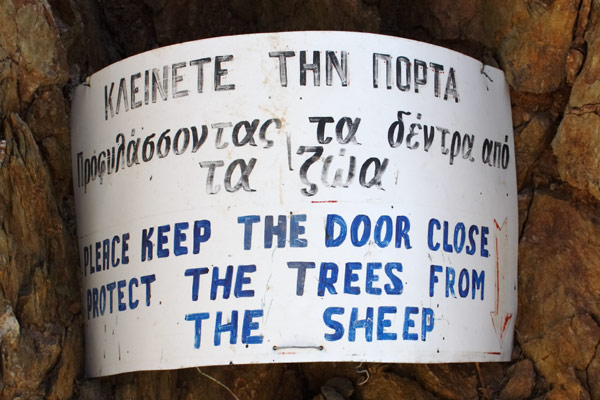 ΚΛΕΙΝΕΤΕ ΤΗΝ ΠΟΡΤΑ
Προφυλάσσοντας τα δέντρα από
τα ζώα
PLEACE KEEP THE DOOR CLOSE
PROTECT THE TREES FROM
THE SHEEP